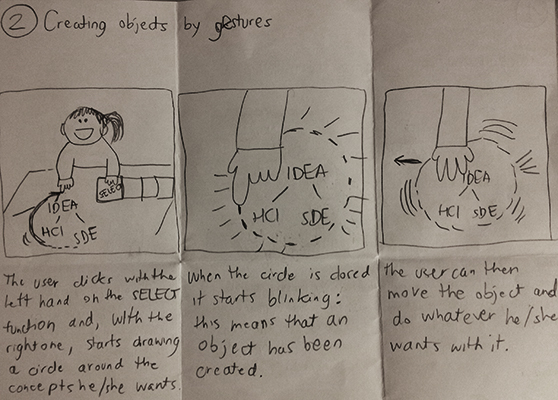 2 Creating objects by gestures
SELEC
IDEA
HCI SDE
IDEA
HCI SDE
IDEA
HCI SDE
The user clicks with the
left hand on the SELECT
function and, with the
right one, starts drawing
a circle around the
concepts he/she wants.
When the circle is closed
it starts blinking:
this means that an
object has been
created.
the user can then
move the object and
do whatever he/she
wants with it.